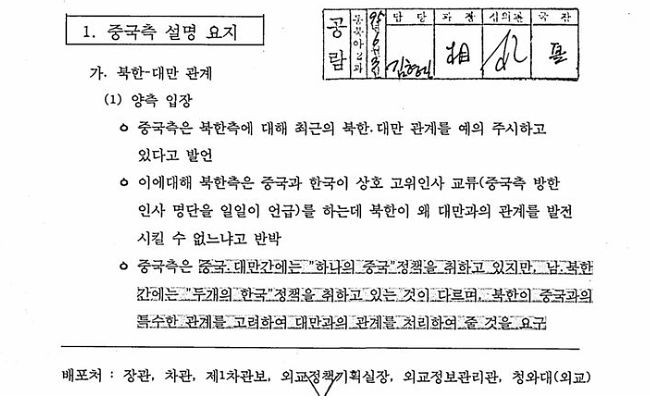 1. 중국측 설명 요지
공람
동북아2과
담 당
과 장
심의관
국 장
가. 북한-대만 관계
(1) 양측 입장
o 중국측은 북한측에 대해 최근의 북한.대만 관계를 예의 주시하고
있다고 발언
o 이에대해 북한측은 중국과 한국이 상호 고위인사 교류(중국측 방한
인사 명단을 일일이 언급)를 하는데 북한이 왜 대만과의 관계를 발전
시킬 수 없느냐고 반박
o 중국측은 중국.대만간에는 "하나의 중국"정책을 취하고 있지만, 남.북한
간에는 "두개의 한국"정책을 취하고 있는 것이 다르며, 북한이 중국과의
특수한 관계를 고려하여 대만과의 관계를 처리하여 줄 것을 요구
배포처 : 장관, 차관, 제1차관보, 외교정책기획실장, 외교정보관리관, 청와대(외교)